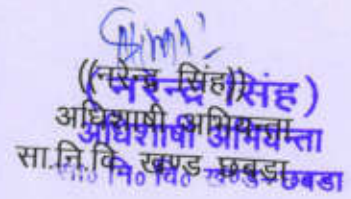 ((नरेन्द्र सिंह))
(नरेन्द्र सिंह)
अधिशाषी अभियन्ता
अधिशाषी अभियन्ता
सा.नि.वि. खण्ड छबड़ा
सा० नि० वि० खण्ड-छबडा